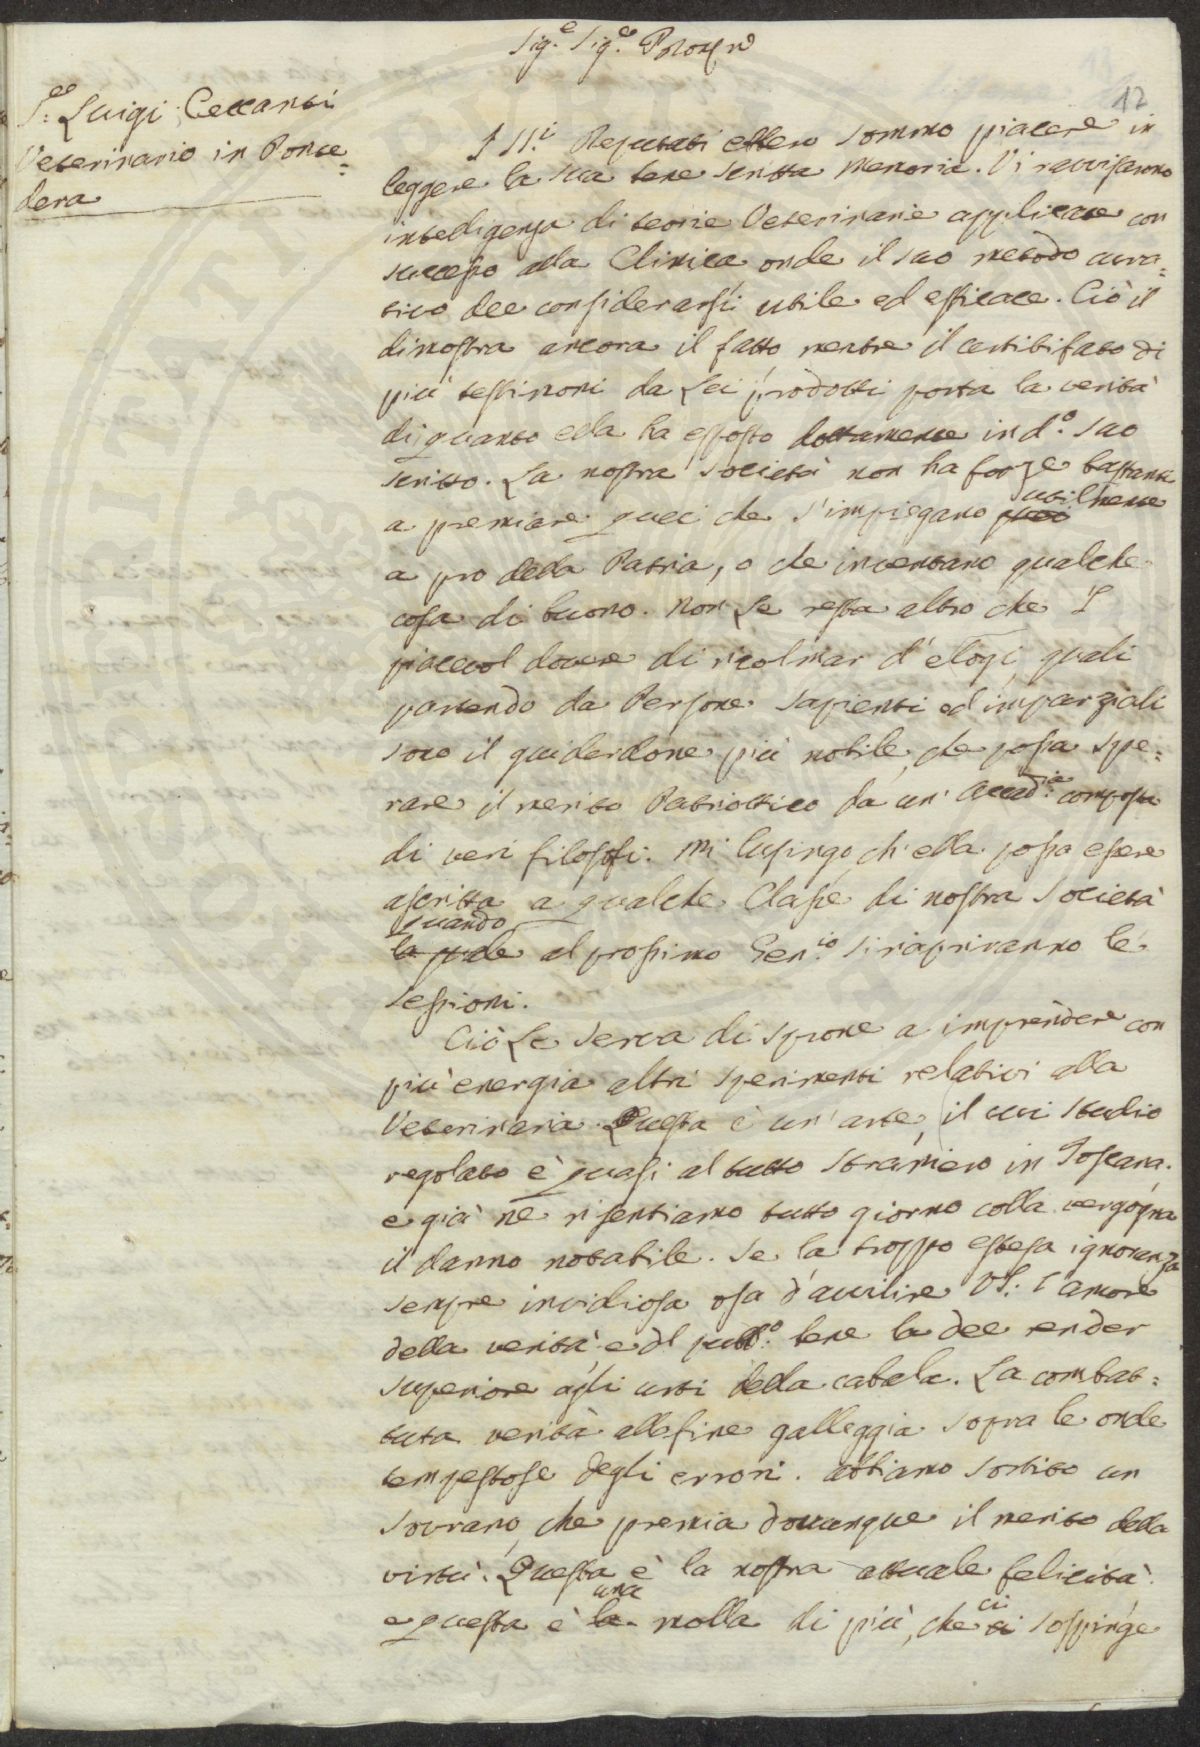 Sig.e Sig.e Pron
12
S.e Luigi Ceccanti
Veterinario in Ponte=
dera
I SS.i Deputati ebbero sommo piacere in
leggere la sua bene scritta memoria. Vi ravvisarono
intelligenza di teorie Veterinarie applicate con
successo alla Clinica, onde il suo metodo cura=
tivo dee considerarsi utile ed efficace. Ciò il
dimostra ancora il fatto mentre il certificato di
più testimoni da Lei prodotti porta la verità
di quanto ella ha esposto dottamente in d.o suo
scritto. La nostra società non ha forze bastanti
a premiare quei che s'impiegano utilmente
a pro della Patria, o che inventano qualche
cosa di buono. Non Le resta altro che I
piacevol dovere di ricolmar d'elogi, quali
partendo da Persone sapienti ed imparziali
sono il guiderdone più nobile, che possa spe=
rare il merito Patriottico da un' Accad.ia composta
di veri filosofi. Mi lusingo, ch' ella possa essere
ascritta a qualche Classe di nostra Società
quando
la quale al prossimo Gen.io si riapriranno le
sessioni.
Ciò Le serva di sprone a imprendere con
più energia altri sperimenti relativi alla
Veterinaria. Questa è un' arte, il cui studio
regolato è quasi al tutto straniero in Toscana.
e già ne risentiamo tutto giorno colla vergogna
il danno notabile. Se la troppo estesa ignoranza
sempre invidiosa osa d'avvilire VS: l'amore
della verità e dl pubb.o bene la dee render
superiore agli urti della cabala. La combat=
tuta verità allafine galleggia sopra le onde
tempestose degli errori. Abbiamo sortito un
sovrano, che premia dovunque il merito della
virtù. Questa è la nostra attuale felicità.
una ci
e questa è la molla di più, che si sospinge